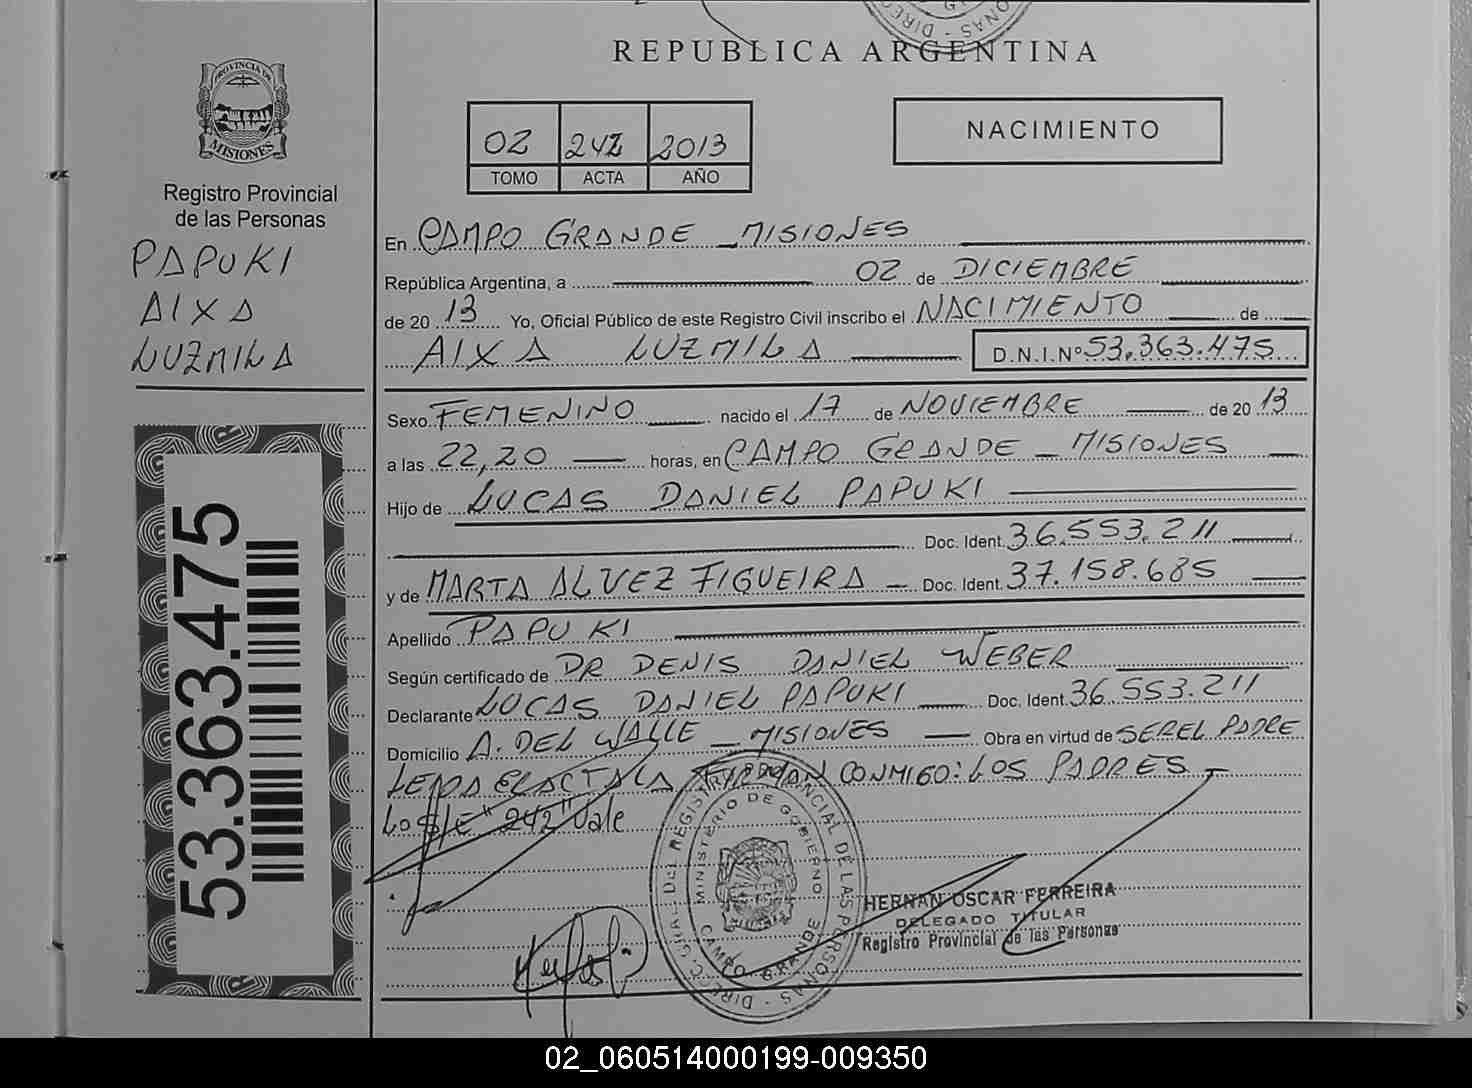 REPUBLICA ARGENTINA
PROVINCIA DE
MISIONES
Registro Provincial
de las Personas
PAPUKI
AIXA
LUZMILA
53.363.475
02 242 2013
TOMO ACTA AÑO
NACIMIENTO
En CAMPO GRANDE _ MISIONES
República Argentina, a 02 de DICIEMBRE
de 20 13 Yo, Oficial Público de este Registro Civil inscribo el NACIMIENTO de
AIXA LUZMILA D.N.I.Nº 53.363.475
Sexo FEMENINO nacido el 17 de NOVIEMBRE de 20 13
a las 22,20 horas, en CAMPO GRANDE _ MISIONES
Hijo de LUCAS DANIEL PAPUKI
Doc. Ident. 36.553.211
y de MARTA ALVEZ FIGUEIRA Doc. Ident. 37.158.685
Apellido PAPUKI
Según certificado de DR DENIS DANIEL WEBER
Declarante LUCAS DANIEL PAPUKI Doc. Ident. 36.553.211
Domicilio A. DEL WALLE _ MISIONES Obra en virtud de SER EL PADRE
LEIDA EL ACTA LA FIRMAN CONMIGO: LOS PADRES
Lo S/E "242" Vale
DIREC. GRAL. DEL REGISTRO PROVINCIAL DE LAS PERSONAS
MINISTERIO DE GOBIERNO
CAMPO GRANDE
HERNAN OSCAR FERREIRA
DELEGADO TITULAR
Registro Provincial de las Personas
02_060514000199-009350